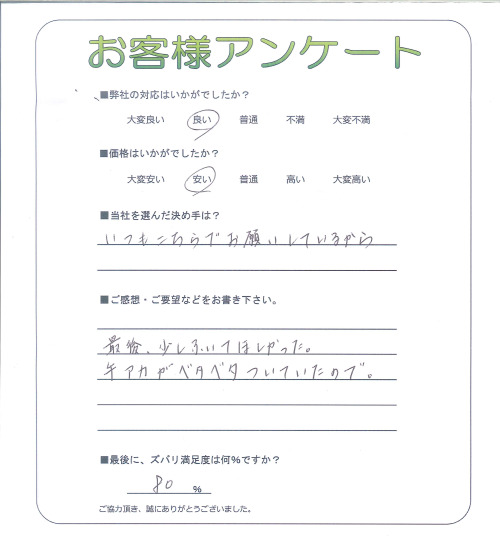 お客様アンケート
■弊社の対応はいかがでしたか?
大変良い 良い 普通 不満 大変不満
■価格はいかがでしたか?
大変安い 安い 普通 高い 大変高い
■当社を選んだ決め手は?
いつもこちらでお願いしているから
■ご感想・ご要望などをお書き下さい。
最後、少しふいてほしかった。
手アカがベタベタついていたので。
■最後に、ズバリ満足度は何%ですか?
80 %
ご協力頂き、誠にありがとうございました。